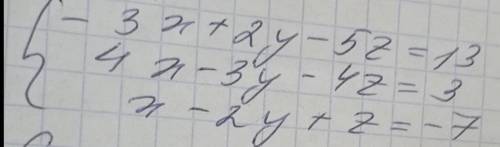 - 3x + 2y - 5z = 13
4x - 3y - 4z = 3
x - 2y + z = -7